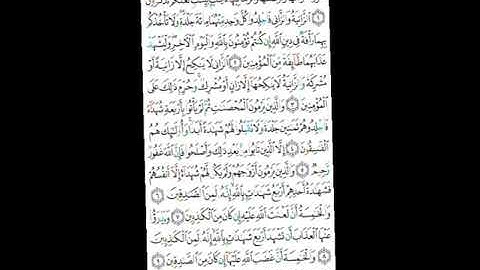 ۝١ ٱلزَّانِيَةُ وَٱلزَّانِى فَٱجْلِدُوا۟ كُلَّ وَٰحِدٍ مِّنْهُمَا مِا۟ئَةَ جَلْدَةٍ وَلَا تَأْخُذْكُم
بِهِمَا رَأْفَةٌ فِى دِينِ ٱللَّهِ إِن كُنتُمْ تُؤْمِنُونَ بِٱللَّهِ وَٱلْيَوْمِ ٱلْءَاخِرِ وَلْيَشْهَدْ
عَذَابَهُمَا طَآئِفَةٌ مِّنَ ٱلْمُؤْمِنِينَ ۝٢ ٱلزَّانِى لَا يَنكِحُ إِلَّا زَانِيَةً أَوْ
مُشْرِكَةً وَٱلزَّانِيَةُ لَا يَنكِحُهَآ إِلَّا زَانٍ أَوْ مُشْرِكٌ وَحُرِّمَ ذَٰلِكَ عَلَى
ٱلْمُؤْمِنِينَ ۝٣ وَٱلَّذِينَ يَرْمُونَ ٱلْمُحْصَنَٰتِ ثُمَّ لَمْ يَأْتُوا۟ بِأَرْبَعَةِ شُهَدَآءَ
فَٱجْلِدُوهُمْ ثَمَٰنِينَ جَلْدَةً وَلَا تَقْبَلُوا۟ لَهُمْ شَهَٰدَةً أَبَدًا وَأُو۟لَٰٓئِكَ هُمُ
ٱلْفَٰسِقُونَ ۝٤ إِلَّا ٱلَّذِينَ تَابُوا۟ مِنۢ بَعْدِ ذَٰلِكَ وَأَصْلَحُوا۟ فَإِنَّ ٱللَّهَ غَفُورٌ
رَّحِيمٌ ۝٥ وَٱلَّذِينَ يَرْمُونَ أَزْوَٰجَهُمْ وَلَمْ يَكُن لَّهُمْ شُهَدَآءُ إِلَّآ أَنفُسُهُمْ
فَشَهَٰدَةُ أَحَدِهِمْ أَرْبَعُ شَهَٰدَٰتٍۭ بِٱللَّهِ إِنَّهُۥ لَمِنَ ٱلصَّٰدِقِينَ ۝٦
وَٱلْخَٰمِسَةُ أَنَّ لَعْنَتَ ٱللَّهِ عَلَيْهِ إِن كَانَ مِنَ ٱلْكَٰذِبِينَ ۝٧ وَيَدْرَؤُا۟
عَنْهَا ٱلْعَذَابَ أَن تَشْهَدَ أَرْبَعَ شَهَٰدَٰتٍۭ بِٱللَّهِ إِنَّهُۥ لَمِنَ ٱلْكَٰذِبِينَ
۝٨ وَٱلْخَٰمِسَةَ أَنَّ غَضَبَ ٱللَّهِ عَلَيْهَآ إِن كَانَ مِنَ ٱلصَّٰدِقِينَ ۝٩